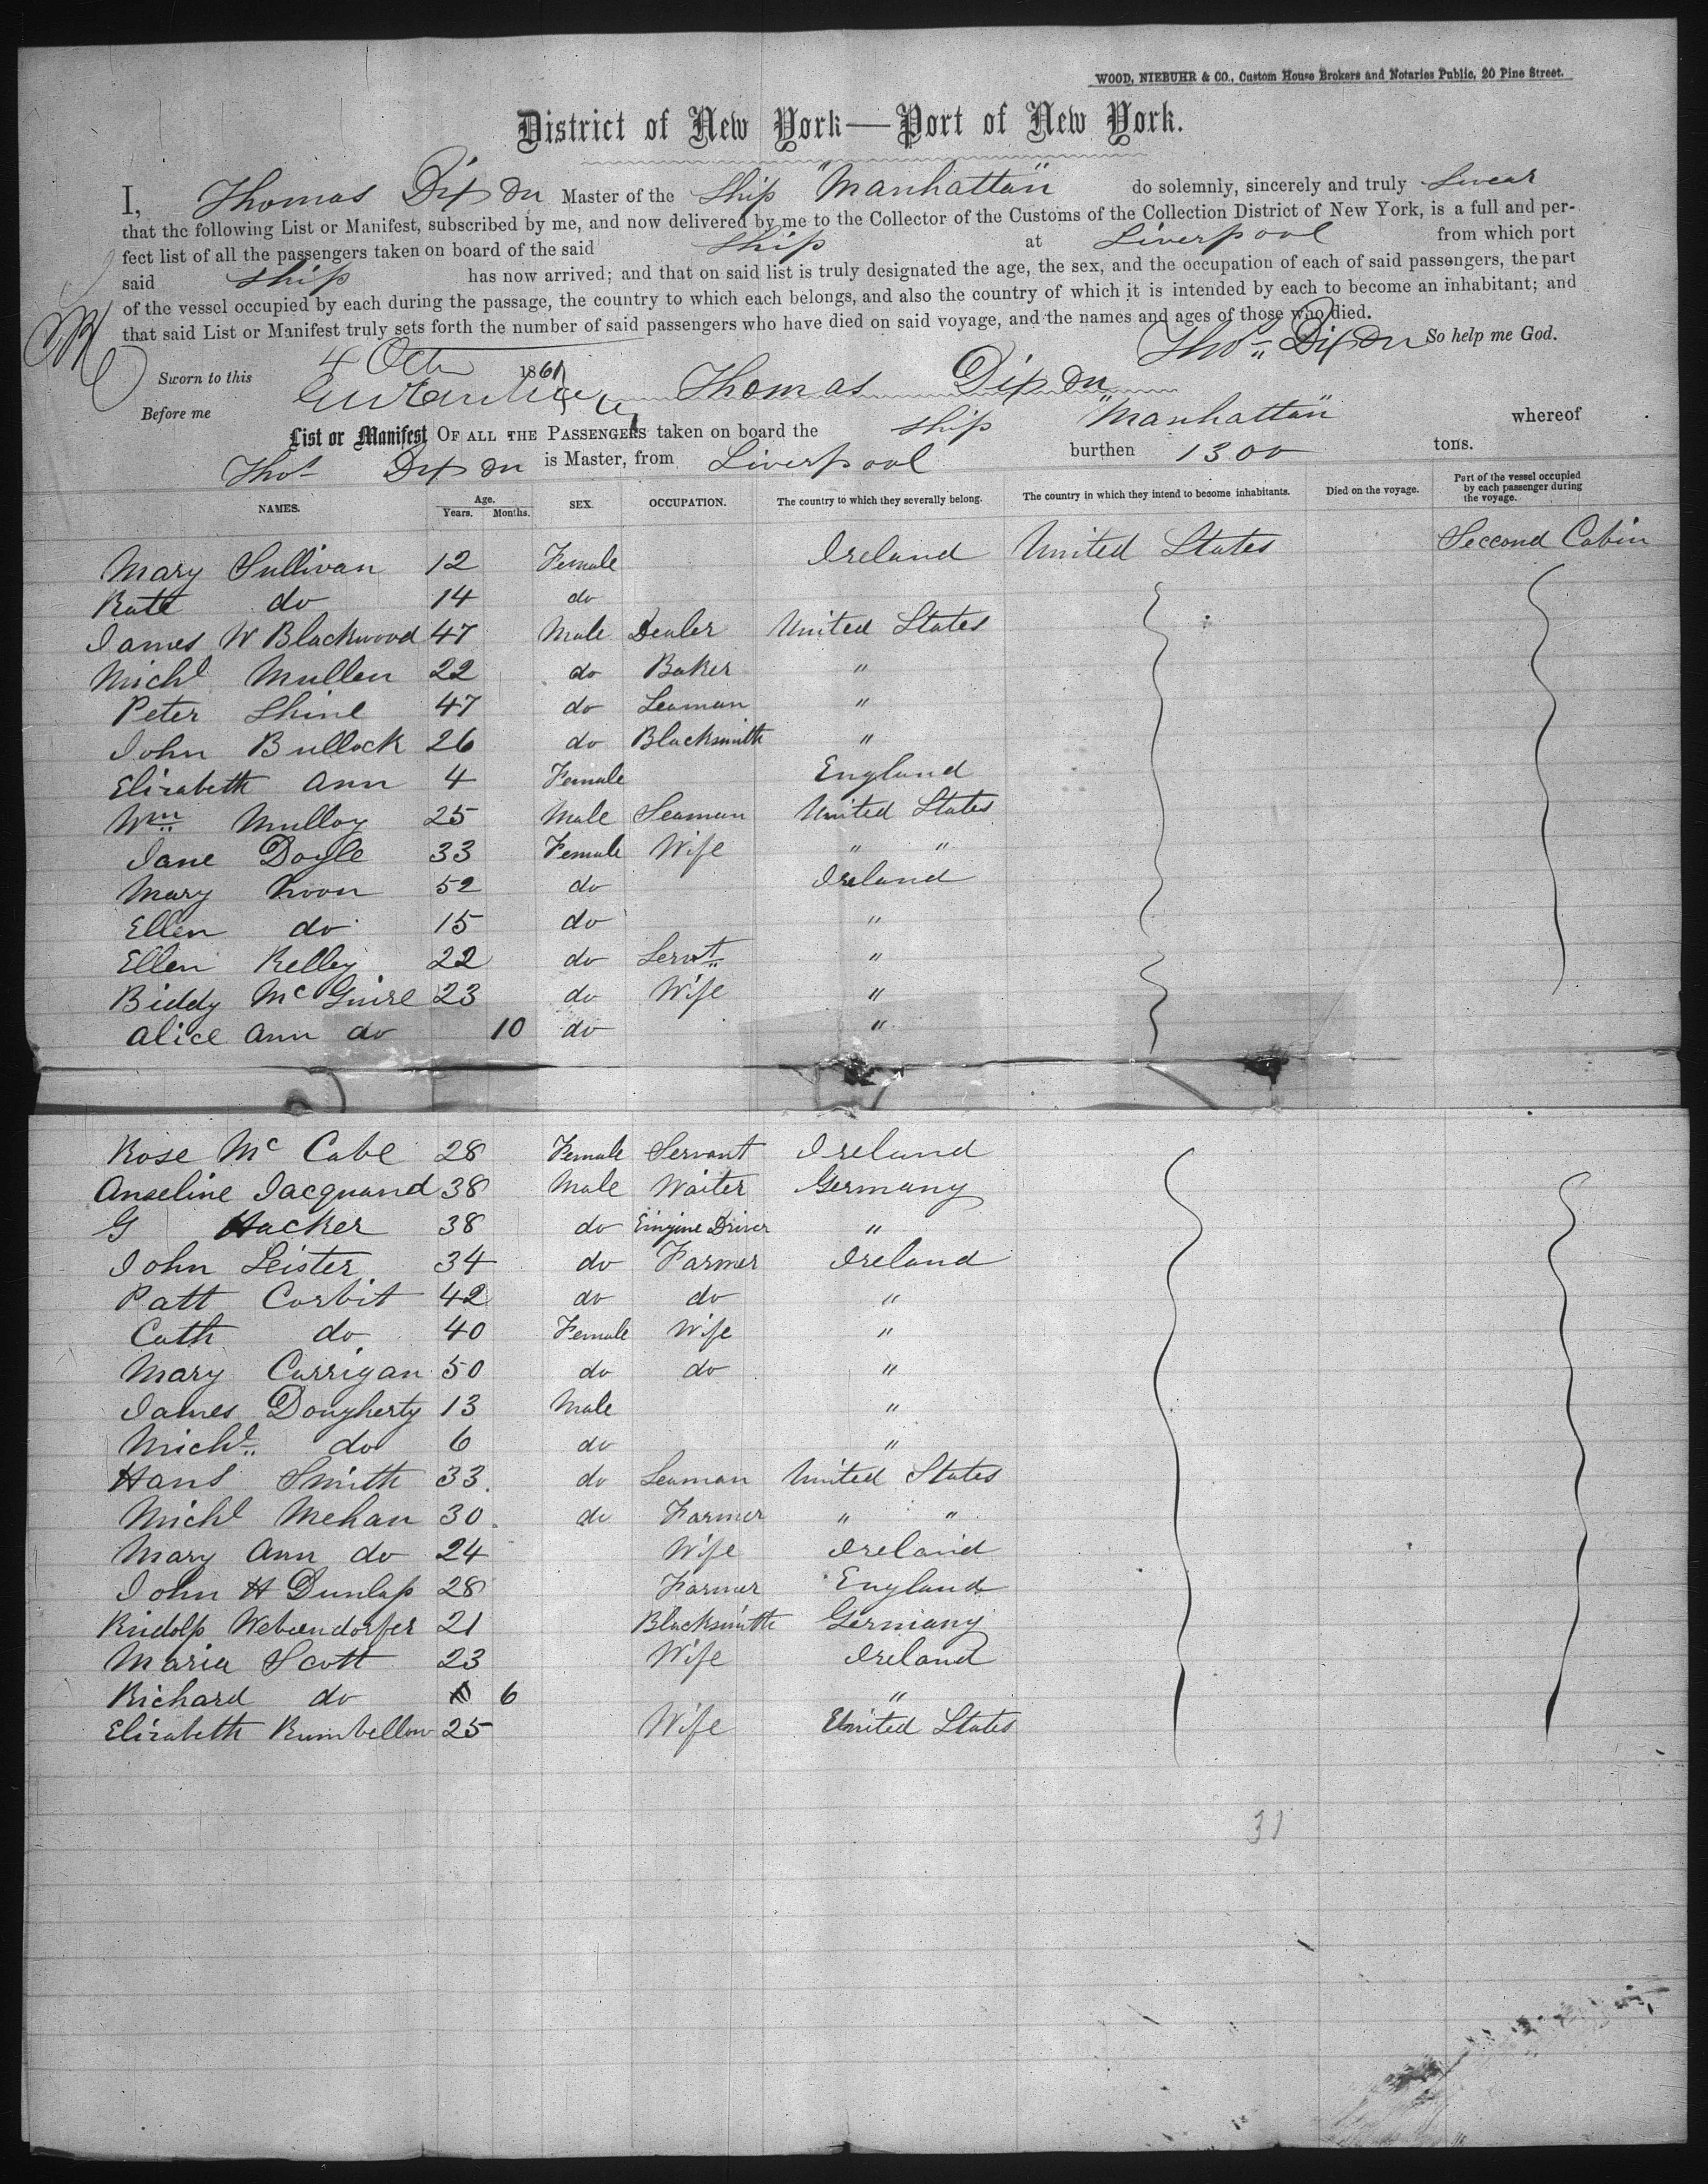 WOOD, NIEBUHR & CO., Custom House Brokers and Notaries Public, 20 Pine Street.
District of New York—Port of New York.
I, Thomas Dixon Master of the Ship "Manhattan" do solemnly, sincerely and truly swear
that the following List or Manifest, subscribed by me, and now delivered by me to the Collector of the Customs of the Collection District of New York, is a full and per-
fect list of all the passengers taken on board of the said Ship at Liverpool from which port
said Ship has now arrived; and that on said list is truly designated the age, the sex, and the occupation of each of said passengers, the part
of the vessel occupied by each during the passage, the country to which each belongs, and also the country of which it is intended by each to become an inhabitant; and
that said List or Manifest truly sets forth the number of said passengers who have died on said voyage, and the names and ages of those who died.
Thos Dixon So help me God.
Sworn to this 4 Octr 1861
Thomas Dixon
Before me
List or Manifest OF ALL THE PASSENGERS taken on board the ship "Manhattan" whereof
Thos Dixon is Master, from Liverpool burthen 1300 tons.
NAMES. Age. Years. Months. SEX. OCCUPATION. The country to which they severally belong. The country in which they intend to become inhabitants. Died on the voyage. Part of the vessel occupied by each passenger during the voyage.
Mary Sullivan 12 Female Ireland United States Seccond Cabin
Kate do 14 do
James W Blackwood 47 Male Dealer United States
Michl Mullen 22 do Baker "
Peter Shine 47 do Seaman "
John Bullock 26 do Blacksmith "
Elizabeth Ann 4 Female England
Wm Mulloy 25 Male Seaman United States
Jane Doyle 33 Female Wife " "
Mary Noon 52 do Ireland
Ellen do 15 do "
Ellen Kelley 22 do Servt "
Biddy McGuire 23 do Wife "
Alice Ann do 10 do "
Rose McCabe 28 Female Servant Ireland
Anseline Jacquand 38 Male Waiter Germany
G Hacker 38 do Eingine Driver "
John Leister 34 do Farmer Ireland
Patt Corbit 42 do do "
Cath do 40 Female Wife "
Mary Carrigan 50 do do "
James Dougherty 13 Male "
Michl do 6 do "
Hans Smith 33. do Seaman United States
Michl Mehan 30. do Farmer " "
Mary Ann do 24 Wife Ireland
John H Dunlap 28 Farmer England
Rudolp Webendorfer 21 Blacksmith Germany
Maria Scott 23 Wife Ireland
Richard do 6 "
Elizabeth Rumbellow 25 Wife United States
31